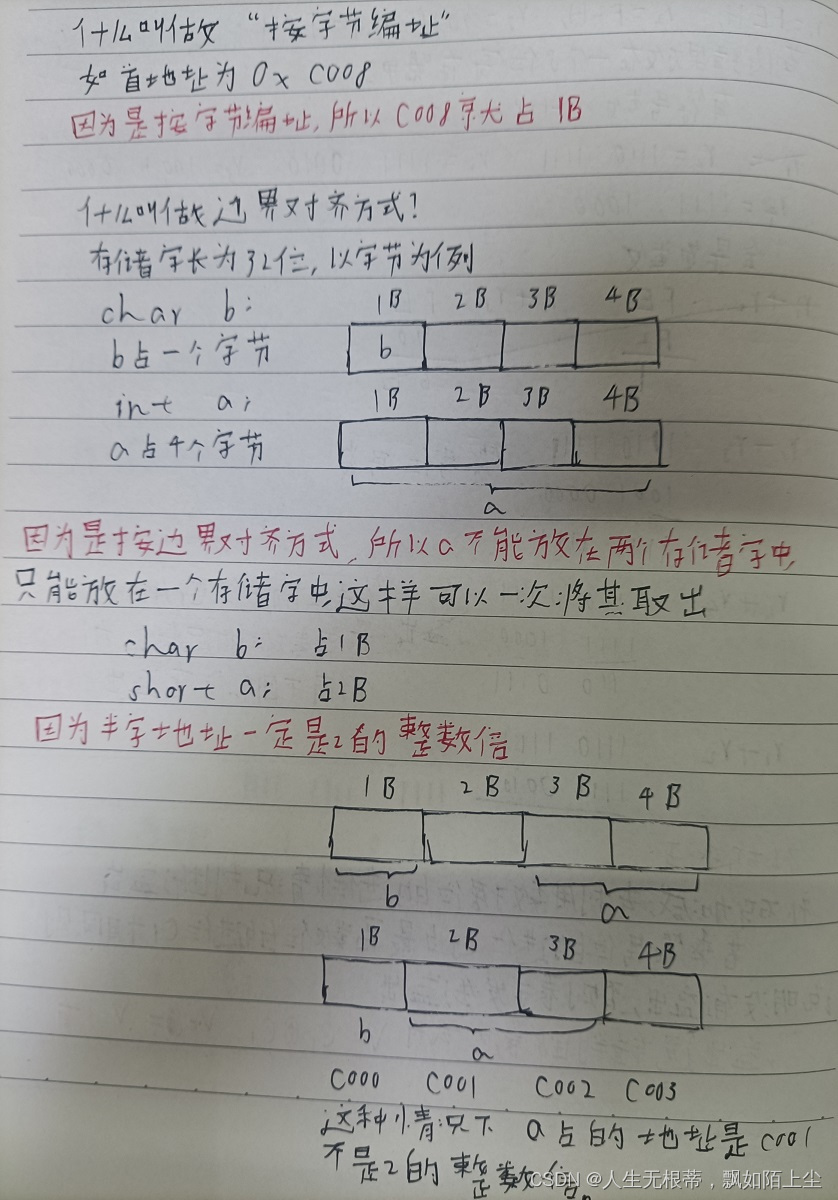 什么叫做"按字节编址"
如首地址为0x C008
因为是按字节编址,所以C008只占1B
什么叫做边界对齐方式?
存储字长为32位,以字节为例
char b; 1B 2B 3B 4B
b占一个字节 b
int a; 1B 2B 3B 4B
a占4个字节
a
因为是按边界对齐方式,所以a不能放在两个存储字中,
只能放在一个存储字中,这样可以一次将其取出
char b; 占1B
short a; 占2B
因为半字地址一定是2的整数倍
1B 2B 3B 4B
b a
1B 2B 3B 4B
b a
C000 C001 C002 C003
这种情况下 a占的地址是C001
不是2的整数倍。
CSDN @人生无根蒂,飘如陌上尘